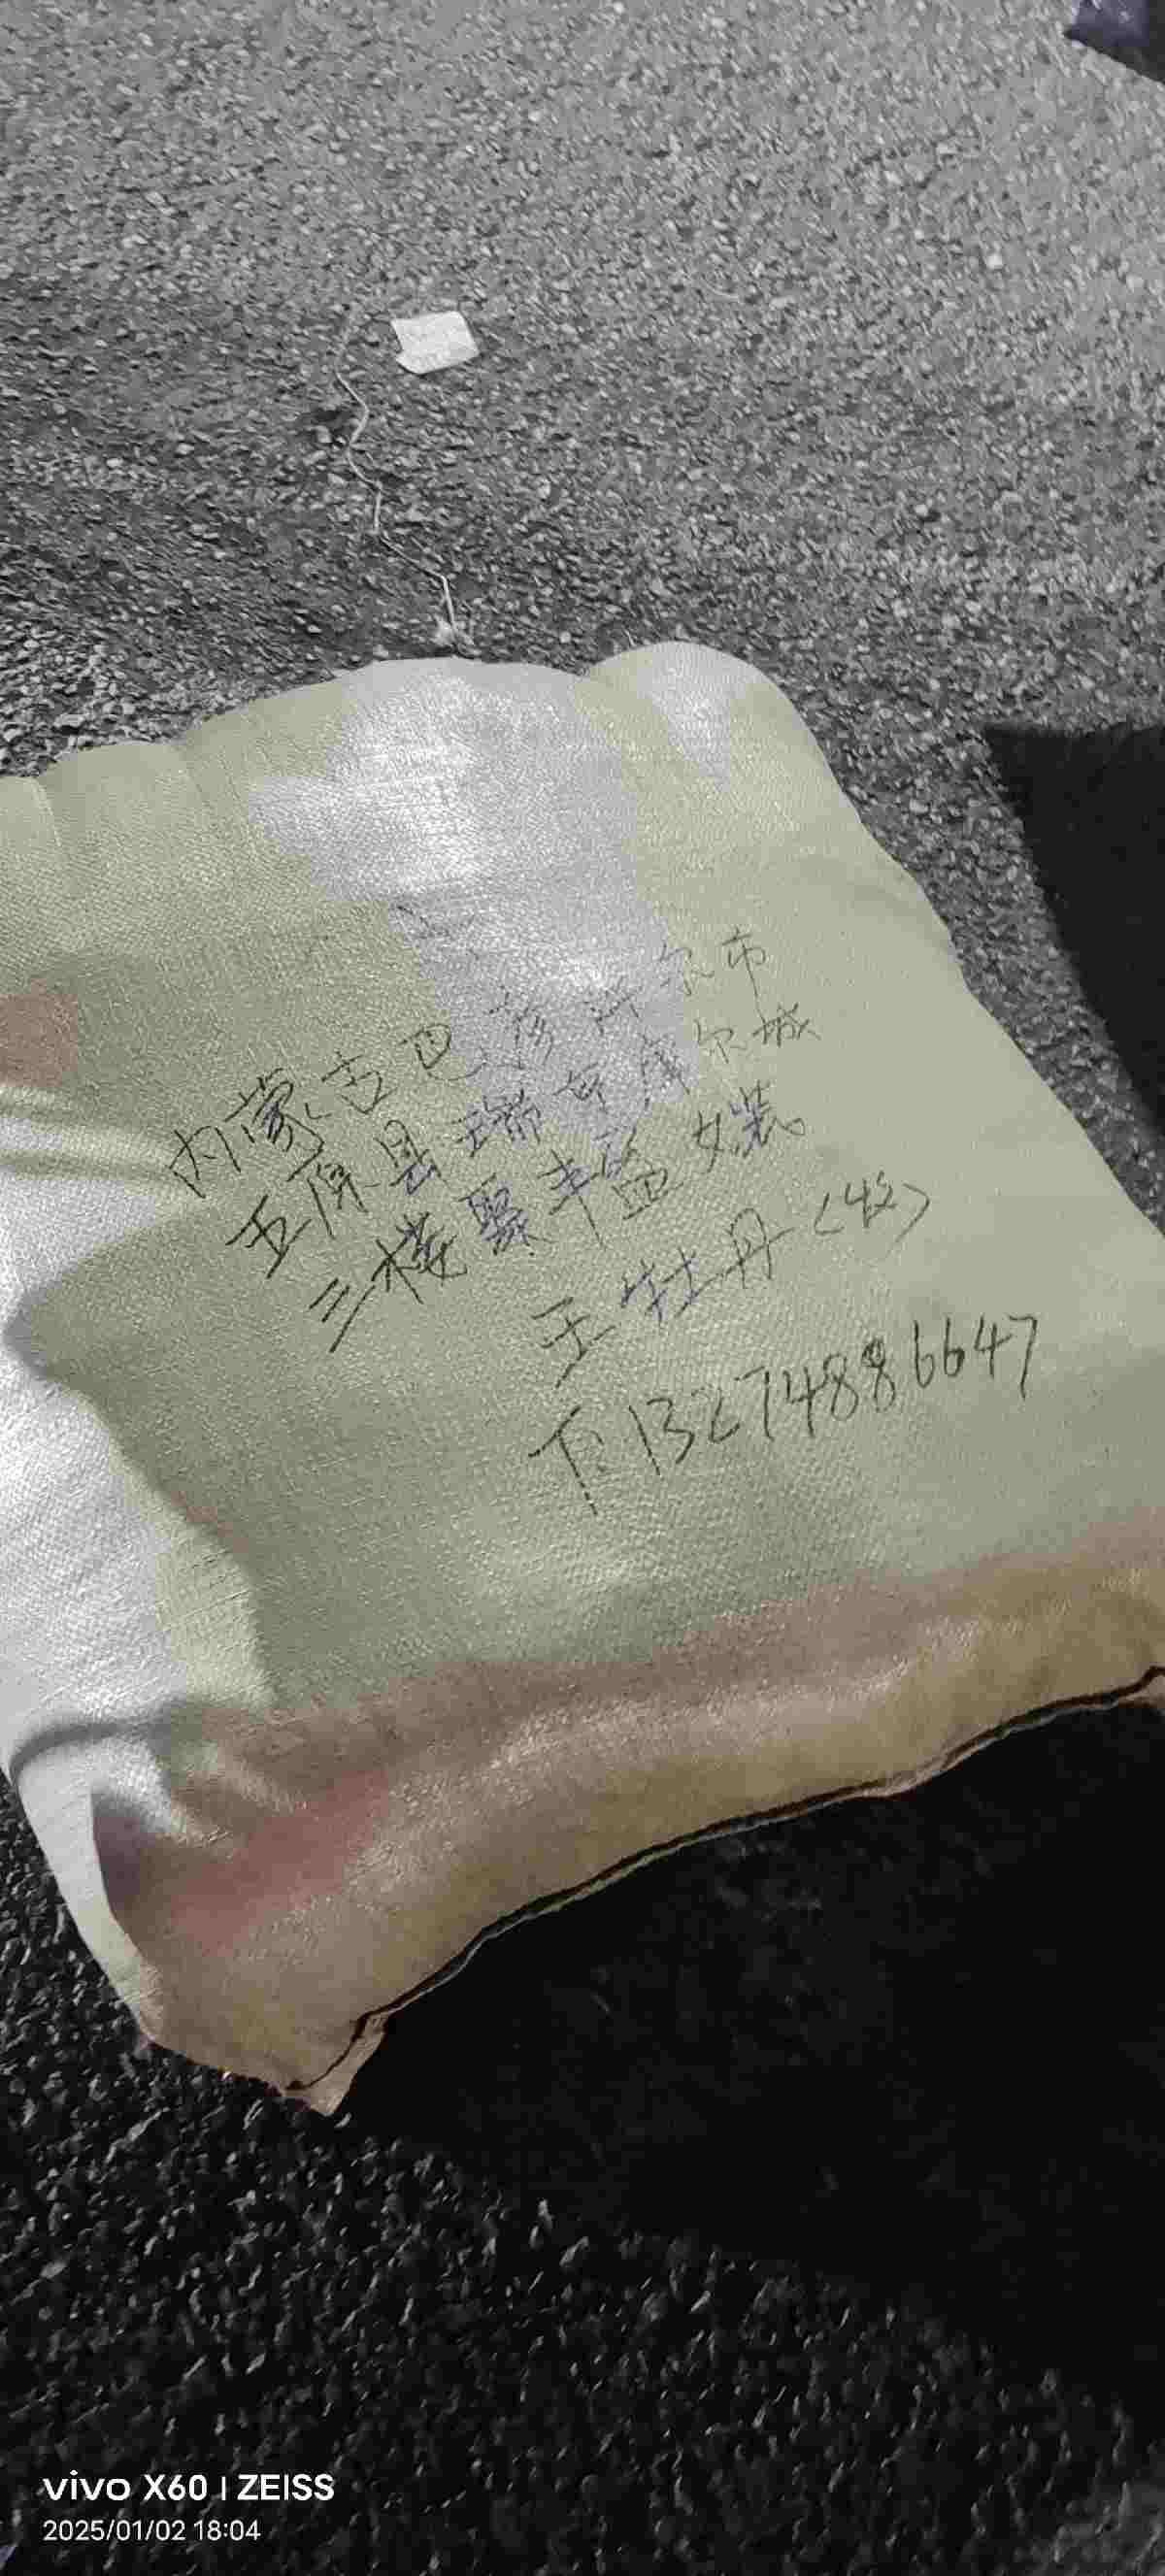 内蒙古巴彦淖尔市
五原县瑞年库尔城
三楼聚丰盈女装
王牡丹(收)
T:13274886647
vivo X60 | ZEISS
2025/01/02 18:04